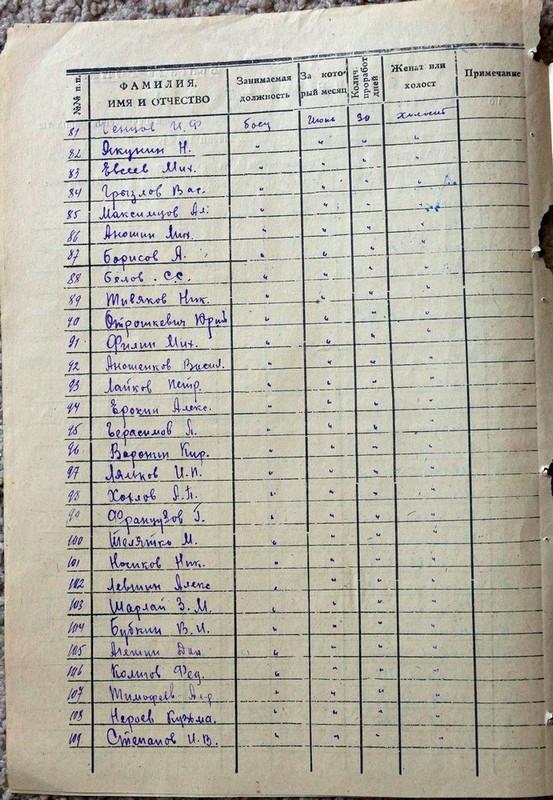 №№ п.п. ФАМИЛИЯ, ИМЯ И ОТЧЕСТВО Занимаемая должность За кото- рый месяц Колич. проработ. дней Женат или холост Примечание
81 И. Ф. боец Июнь 30 холост
82 Якунин Н. " " " "
83 Евсеев Мих. " " " "
84 Грызлов Вас. " " " "
85 Максимцов Ал. " " " "
86 Аношин Мих. " " " "
87 Борисов А. " " " "
88 Белов С.С. " " " "
89 Тивяков Ник. " " " "
90 Отрошкевич Юрий " " " "
91 Филин Мих. " " " "
92 Аношенков Васил. " " " "
93 Лайков Петр. " " " "
94 Ерохин Алекс. " " " "
95 Герасимов А. " " " "
96 Воронин Кир. " " " "
97 И.П. " " " "
98 Хохлов А.П. " " " "
99 Французов Г. " " " "
100 М. " " " "
101 Носиков Ник. " " " "
102 Левшин Алекс " " " "
103 Шарлай З.М. " " " "
104 Бубкин В.И. " " " "
105 " " " "
106 Фед. " " " "
107 Тимофеев " " " "
108 Нероев Кузьма. " " " "
109 Степанов И.В. " " " "